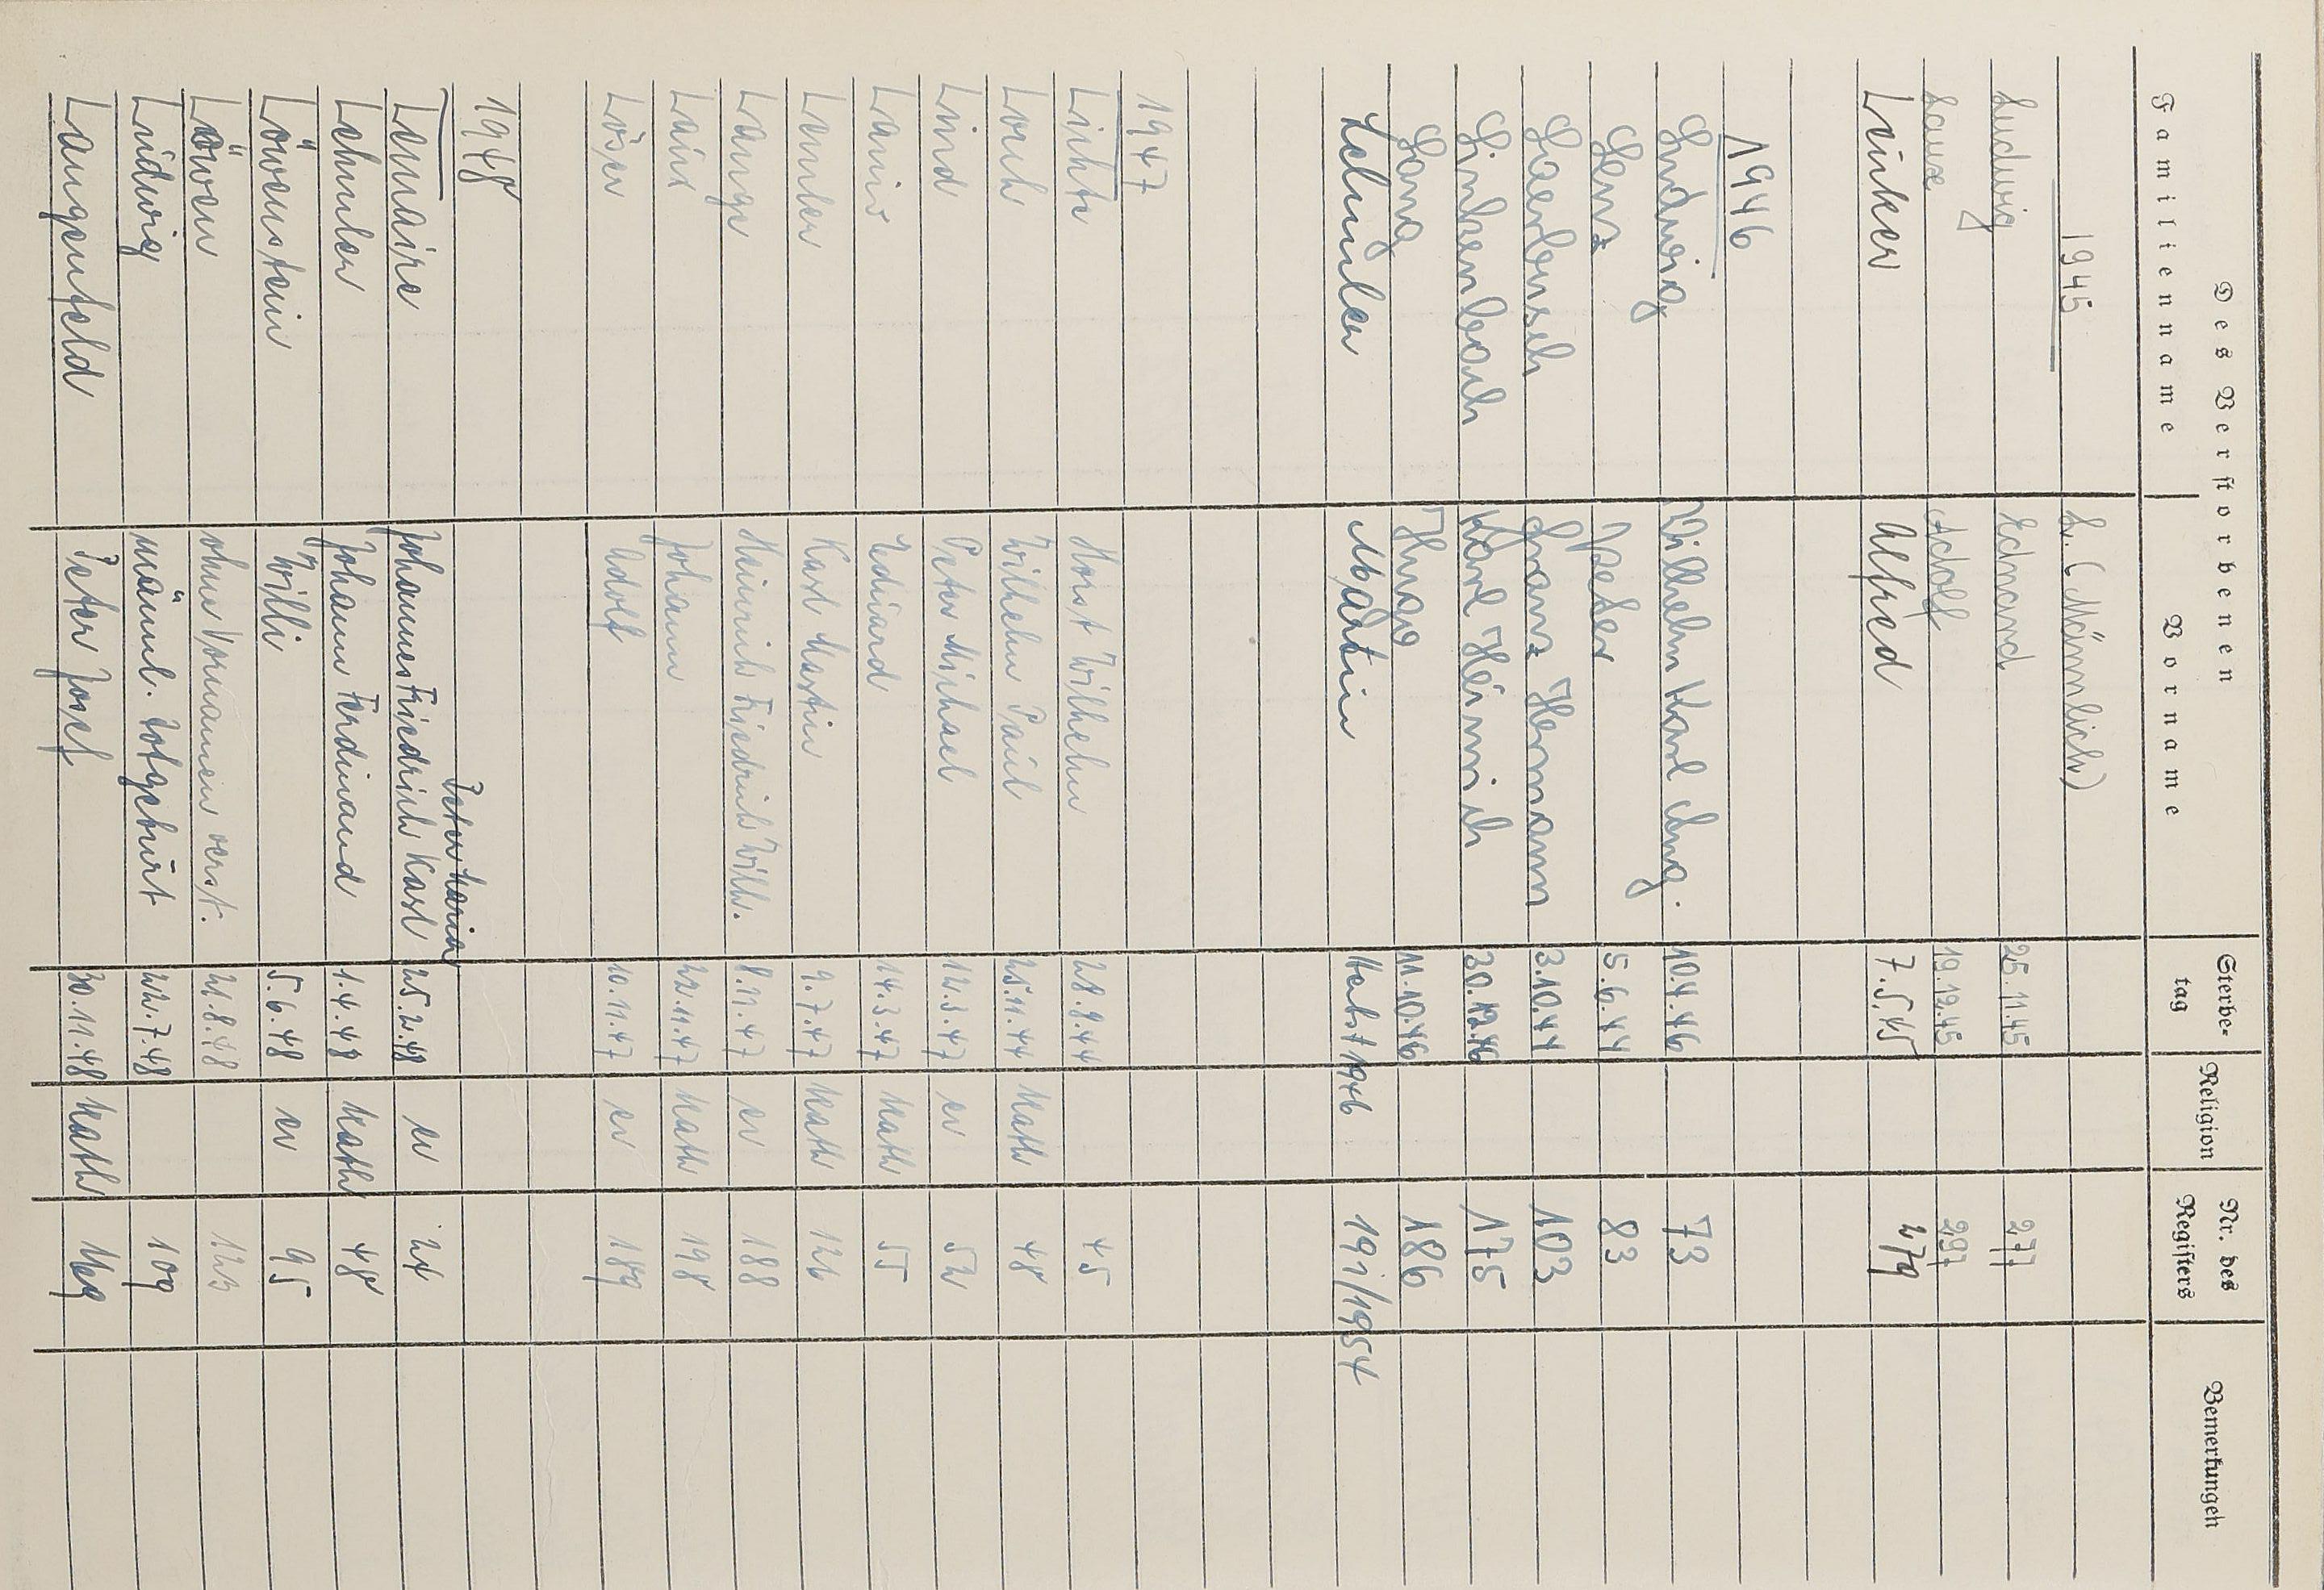 Des Verstorbenen
Familienname Vorname Sterbetag Religion Nr. des Registers Bemerkungen
1945 L. (Männlich)
Ludwig Edmund 25.11.45 277
Laux Adolf 19.12.45 297
Linker Alfred 7.5.45 279
1946
Ludwig Wilhelm Karl Aug. 10.4.46 73
Lenz Peter 5.6.44 83
Laerbusch Franz Hermann 3.10.44 103
Linkenbach Karl Heinrich 30.12.46 175
Lang Hugo 11.10.46 186
Lehnler Martin Herbst 1946 191/1954
1947
Lichte Horst Wilhelm 28.9.44 45
Loch Wilhelm Paul 25.11.44 Kath 48
Lind Peter Michael 12.3.47 ev 52
Lanio Eduard 14.3.47 Kath 55
Lemler Karl Martin 9.7.47 Kath 126
Lange Heinrich Friedrich Wilh. 8.11.47 ev 188
Laux Johann 22.11.47 Kath 198
Löser Adolf 10.11.47 ev 189
1948 Peter Maria
Lemaire Johannes Friedrich Karl 25.2.48 ev 24
Lehmler Johann Ferdinand 1.4.48 Kath 48
Löwenstein Willi 5.6.48 ev 95
Löwen ohne Vornamen verst. 21.8.48 123
Ludwig männl. Totgeburt 22.7.48 109
Langenfeld Peter Josef 30.11.48 Kath 169